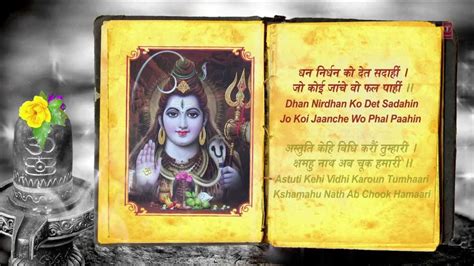 धन निर्धन को देत सदाहीं ।
जो कोई जांचे वो फल पाहीं ॥
Dhan Nirdhan Ko Det Sadahin
Jo Koi Jaanche Wo Phal Paahin
अस्तुति केहि विधि करौं तुम्हारी ।
क्षमहु नाथ अब चूक हमारी ॥
Astuti Kehi Vidhi Karoun Tumhaari
Kshamahu Nath Ab Chook Hamaari